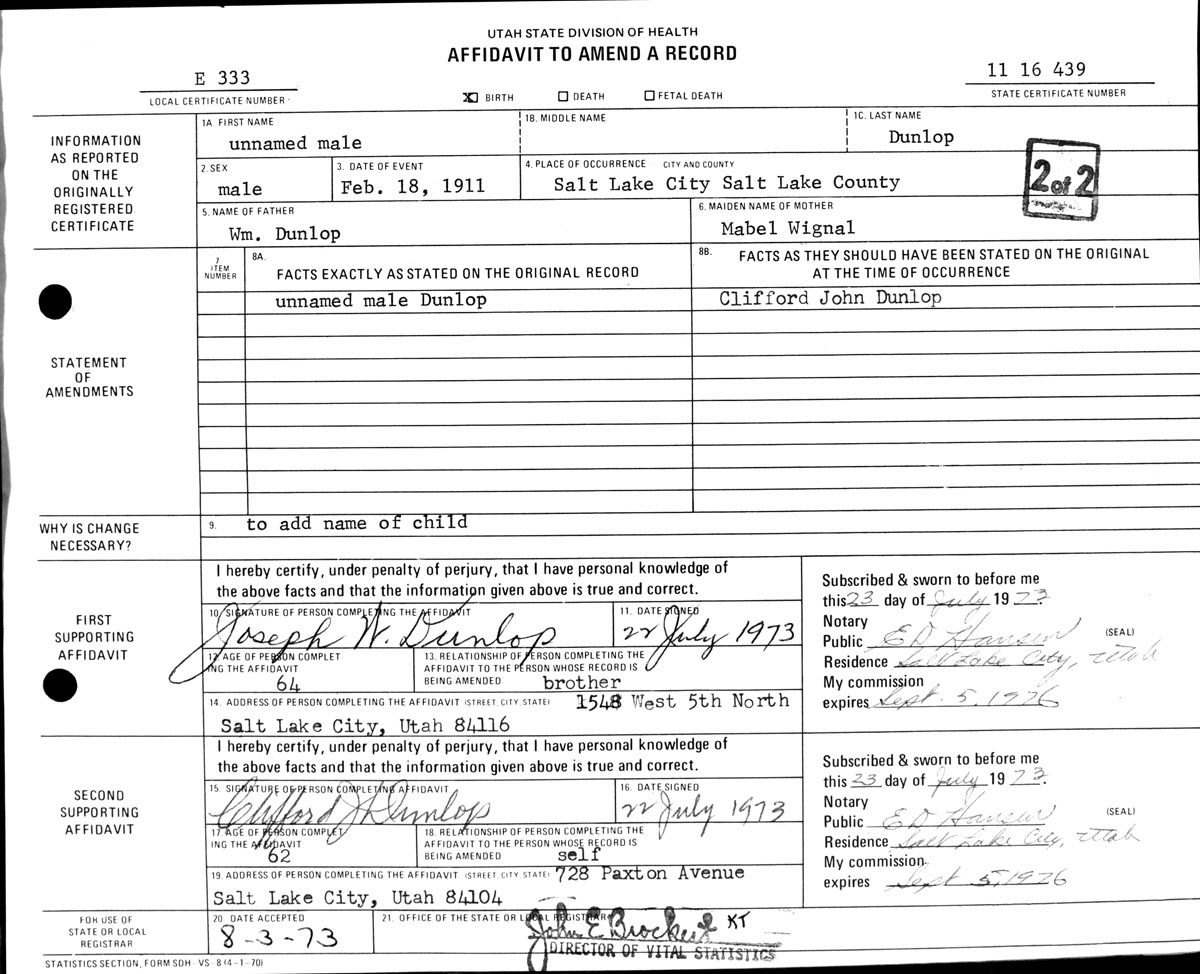 UTAH STATE DIVISION OF HEALTH
AFFIDAVIT TO AMEND A RECORD
E 333
LOCAL CERTIFICATE NUMBER
☒ BIRTH ☐ DEATH ☐ FETAL DEATH
11 16 439
STATE CERTIFICATE NUMBER
INFORMATION
AS REPORTED
ON THE
ORIGINALLY
REGISTERED
CERTIFICATE
1A. FIRST NAME
unnamed male
1B. MIDDLE NAME
1C. LAST NAME
Dunlop
2. SEX
male
3. DATE OF EVENT
Feb. 18, 1911
4. PLACE OF OCCURRENCE - CITY AND COUNTY
Salt Lake City Salt Lake County
2 of 2
5. NAME OF FATHER
Wm. Dunlop
6. MAIDEN NAME OF MOTHER
Mabel Wignal
STATEMENT
OF
AMENDMENTS
7
ITEM
NUMBER
8A.
FACTS EXACTLY AS STATED ON THE ORIGINAL RECORD
8B. FACTS AS THEY SHOULD HAVE BEEN STATED ON THE ORIGINAL
AT THE TIME OF OCCURRENCE
unnamed male Dunlop
Clifford John Dunlop
WHY IS CHANGE
NECESSARY?
9. to add name of child
FIRST
SUPPORTING
AFFIDAVIT
I hereby certify, under penalty of perjury, that I have personal knowledge of
the above facts and that the information given above is true and correct.
10. SIGNATURE OF PERSON COMPLETING THE AFFIDAVIT
Joseph W. Dunlop
11. DATE SIGNED
22 July 1973
12. AGE OF PERSON COMPLET
ING THE AFFIDAVIT
64
13. RELATIONSHIP OF PERSON COMPLETING THE
AFFIDAVIT TO THE PERSON WHOSE RECORD IS
BEING AMENDED brother
14. ADDRESS OF PERSON COMPLETING THE AFFIDAVIT (STREET, CITY, STATE) 1548 West 5th North
Salt Lake City, Utah 84116
Subscribed & sworn to before me
this 23 day of July 1973.
Notary
Public E D Hansen (SEAL)
Residence Salt Lake City, Utah
My commission
expires Sept. 5, 1976
SECOND
SUPPORTING
AFFIDAVIT
I hereby certify, under penalty of perjury, that I have personal knowledge of
the above facts and that the information given above is true and correct.
15. SIGNATURE OF PERSON COMPLETING AFFIDAVIT
Clifford J Dunlop
16. DATE SIGNED
22 July 1973
17. AGE OF PERSON COMPLET
ING THE AFFIDAVIT
62
18. RELATIONSHIP OF PERSON COMPLETING THE
AFFIDAVIT TO THE PERSON WHOSE RECORD IS
BEING AMENDED self
19. ADDRESS OF PERSON COMPLETING THE AFFIDAVIT (STREET, CITY, STATE) 728 Paxton Avenue
Salt Lake City, Utah 84104
Subscribed & sworn to before me
this 23 day of July 1973
Notary
Public E D Hansen (SEAL)
Residence Salt Lake City, Utah
My commission
expires Sept 5, 1976
FOR USE OF
STATE OR LOCAL
REGISTRAR
20. DATE ACCEPTED
8-3-73
21. OFFICE OF THE STATE OR LOCAL REGISTRAR
John E Brockert KT
DIRECTOR OF VITAL STATISTICS
STATISTICS SECTION, FORM SDH - VS - 8 (4-1-70)